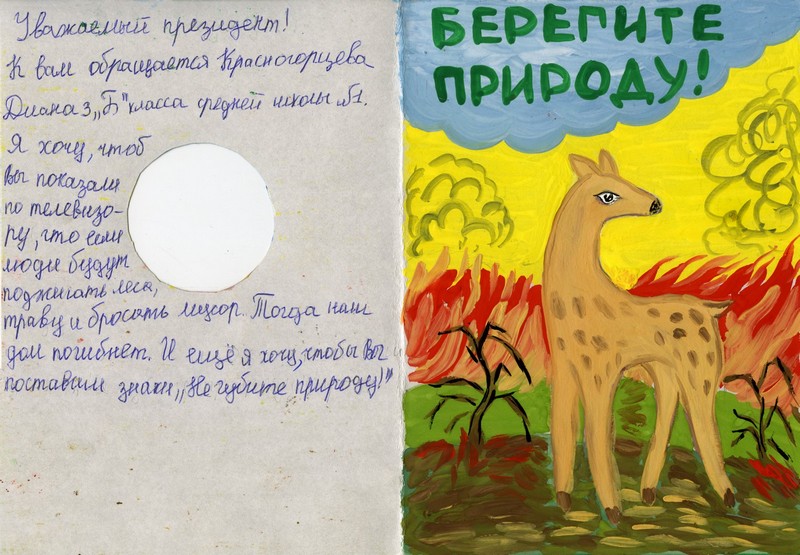 Уважаемый президент!
К вам обращается Красногорцева
Диана 3 „Б" класса средней школы №1.
Я хочу, чтоб
вы показали
по телевизо-
ру, что если
люди будут
поджигать леса,
траву и бросать мусор. Тогда наш
дом погибнет. И ещё я хочу, чтобы Вы
поставили знаки „Не губите природу!"
БЕРЕГИТЕ
ПРИРОДУ!